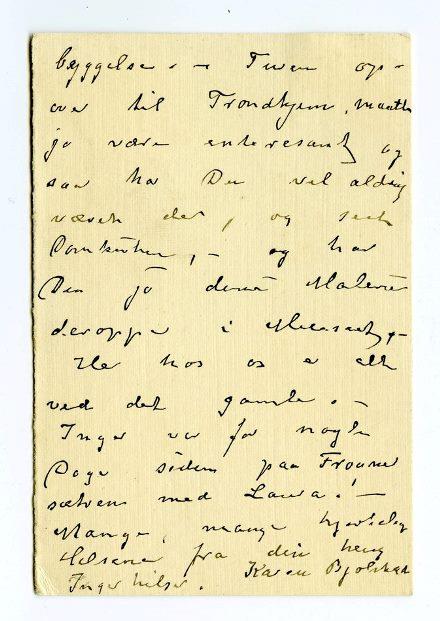 byggelse. – Turen op-
over til Trondhjem, maatte
jo være interesant, og
saa har Du vel aldrig
været der, og seet
Domkirken, – og har
Du jo denne Malerie
deroppe i Museet, –
Her hos os er alt
ved det gamle. –
Inger var for nogle
Dage siden paa
sætren med Laura! –
Mange, mange hjertelig
Hilsener fra din heng
Inger hilser. Karen